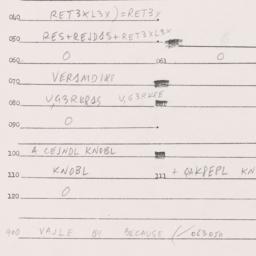 040 RET3XL3X)=RET3X
050 RES+REJDAS+RET3XL3X
0 061 0
070 VERAMDIXE
080 V,G3RKPAS V,G3RKPE
090 0
100 A CEJNDL KNOBL
110 KNOBL 111 + QAKPEPL KN
120 0
900 VAJLE BY BECAUSE /063050